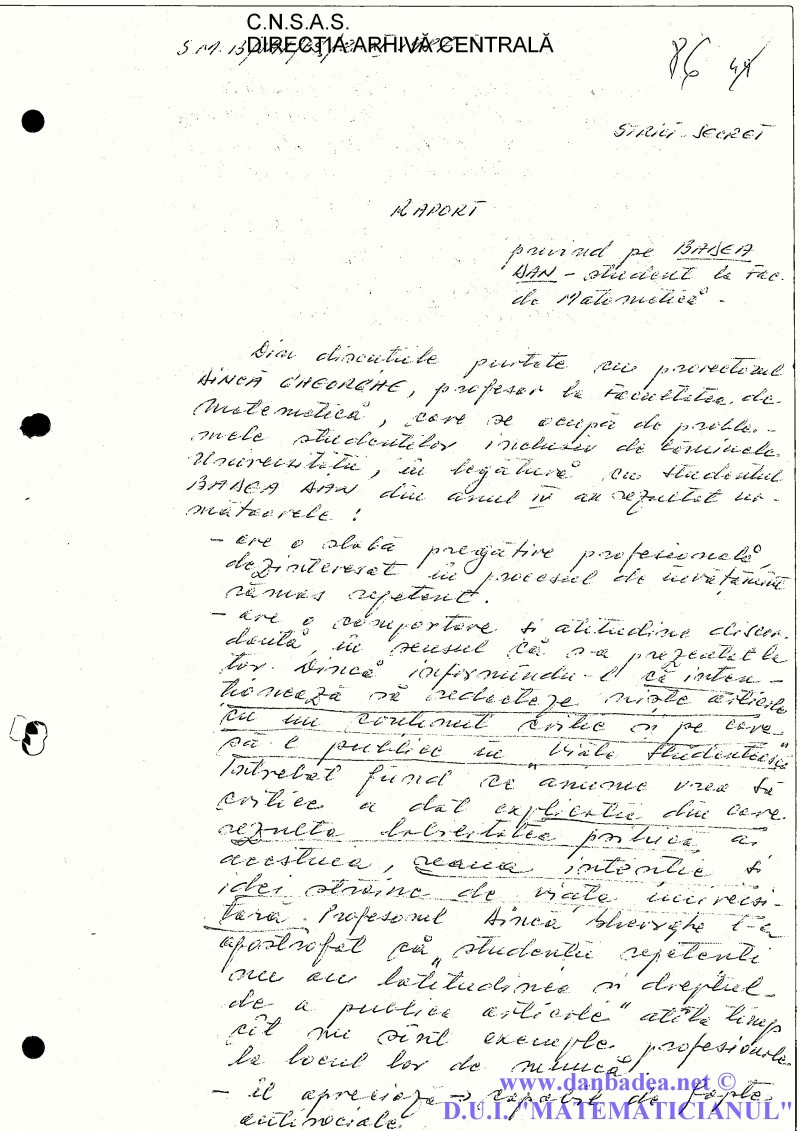 C.N.S.A.S.
DIRECȚIA ARHIVĂ CENTRALĂ
S.M.
86
STRICT SECRET
RAPORT
privind pe BADEA
DAN - student la Fac.
de Matematică -
Din discuțiile purtate cu prorectorul
DINCĂ GHEORGHE, profesor la Facultatea de
Matematică, care se ocupă de proble-
mele studenților inclusiv de căminele
Universității, în legătură cu studentul
BADEA DAN din anul IV au rezultat ur-
mătoarele:
- are o slabă pregătire profesională,
dezinteresat în procesul de învățămînt
rămas repetent.
- are o comportare și atitudine discor-
dantă, în sensul că s-a prezentat la
tov. Dincă informîndu-l că inten-
ționează să redacteze niște articole
cu un conținut critic și pe care
să-l publice în "Viața studențească"
Întrebat fiind ce anume vrea să
critice a dat explicații din care
rezulta labilitatea psihică a
acestuia, reaua intenție și
idei străine de viața universi-
tară. Profesorul Dincă Gheorghe l-a
apostrofat că "studenții repetenți
nu au latitudinea și dreptul
de a publica articole" atîta timp
cît nu sînt exemple profesionale
la locul lor de muncă.
- îl apreciază → capabil de fapte
antisociale.
www.danbadea.net ©
D.U.I."MATEMATICIANUL"